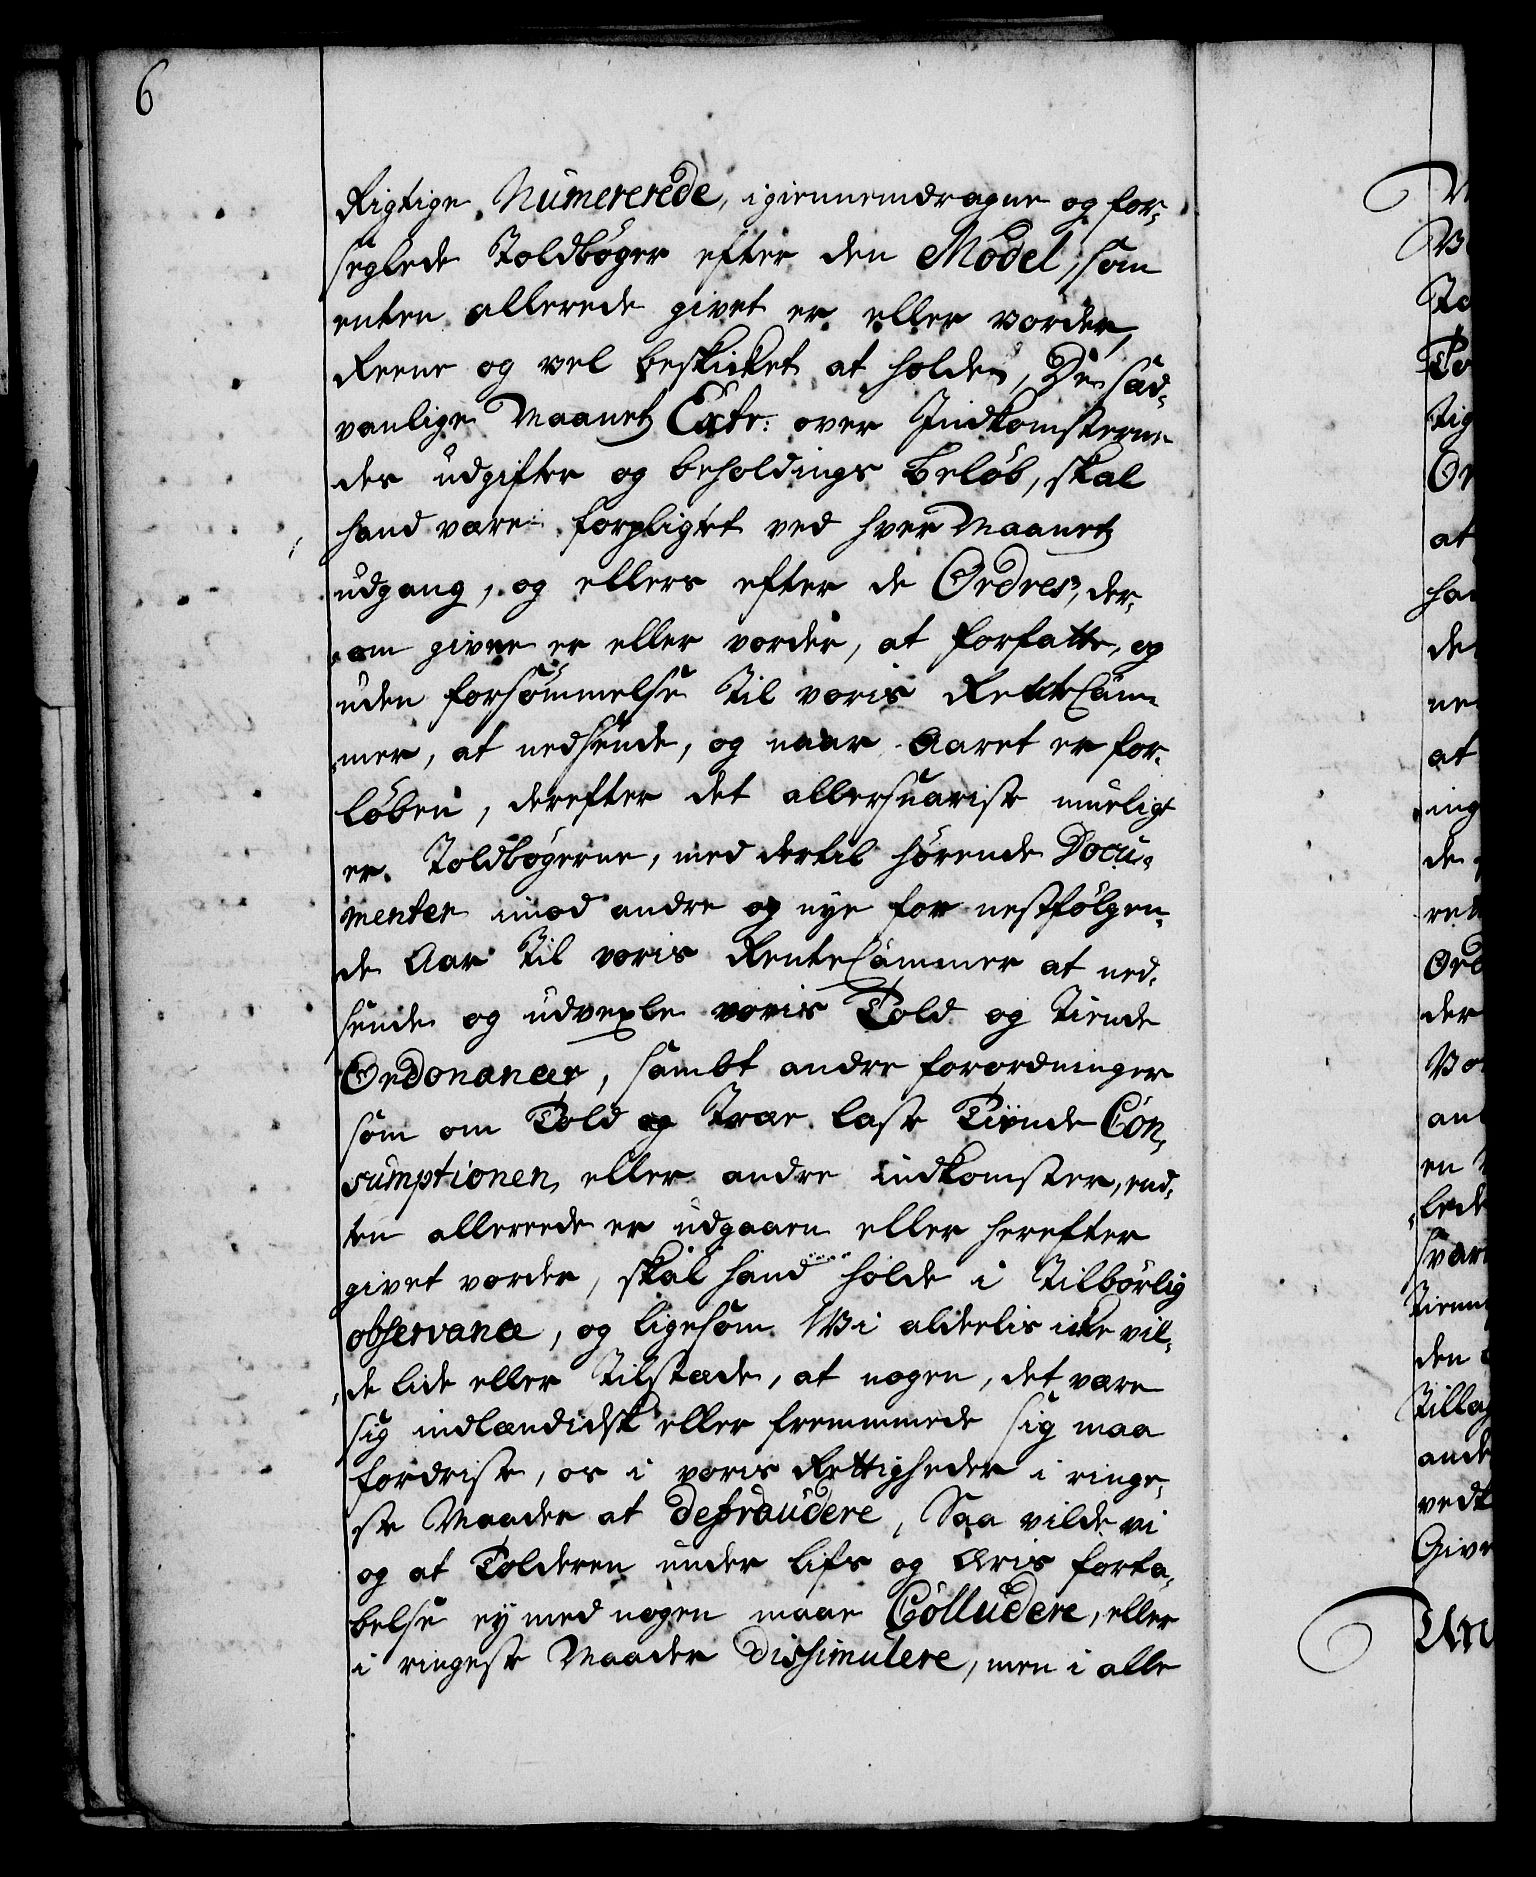 6
Rigtige Numererede, igiennemdragne og for-
seglede Toldbøger efter den Model, som
enten allerede givet er eller vorder,
Reene og vel beskicket at holde, De sæd-
vanlige Maanetz Extr: over Indkomsterne
des udgifter og beholdings Beløb, skal
hand være forpligtet ved hver Maanetz
udgang, og ellers efter de Ordres, der-
om givne er eller vorder, at forfatte, og
uden forsømmelse til voris RenteCam-
mer, at nedsende, og naar Aaret er for-
løben, derefter det allersnariste mueligt
er. Toldbøgerne, med dertil hørende Docu-
menter imod andre og nye for nestfølgen-
de Aar til voris RenteCammer at ned-
sende og udvexle voris Told og Tiende
Ordonancer, sambt andre forordninger
som om Told og Træe last Tiende Con-
sumptionen, eller andre indkomster, end-
ten allereede er udgaaen eller herefter
givet vorder, skal hand holde i tilbørlig
observance, og ligesom Wi alderlis icke vil-
de lide eller tilstæde, at nogen, det være
sig indlændidsk eller fremmede sig maa
fordriste, os i voris Rettigheder i ringe-
ste Maader at defraudere, Saa vilde vi
og at Tolderen under lifs og Æris forta-
belse ey med nogen maae Colludere, eller
i ringeste Maader Dissimulere, men i alle